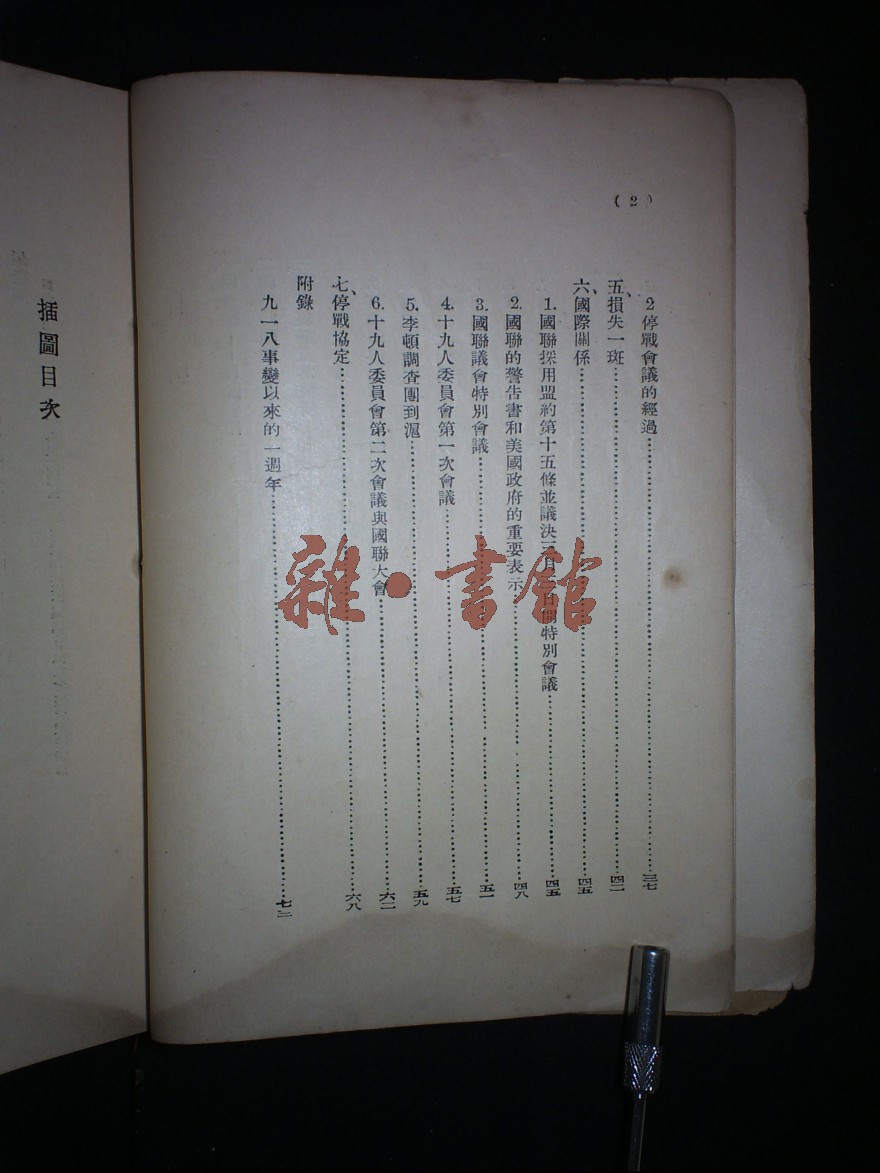 (2)
2 停戰會議的經過 三七
五、損失一斑 四二
六、國際關係 四五
1. 國聯採用盟約第十五條並議決三月 日開特別會議 四五
2. 國聯的警告書和美國政府的重要表示 四八
3. 國聯議會特別會議 五一
4. 十九人委員會第一次會議 五七
5. 李頓調查團到滬 五九
6. 十九人委員會第二次會議與國聯大會 六二
七、停戰協定 六八
附錄
九一八事變以來的一週年 七二
插圖目次
雜·書館